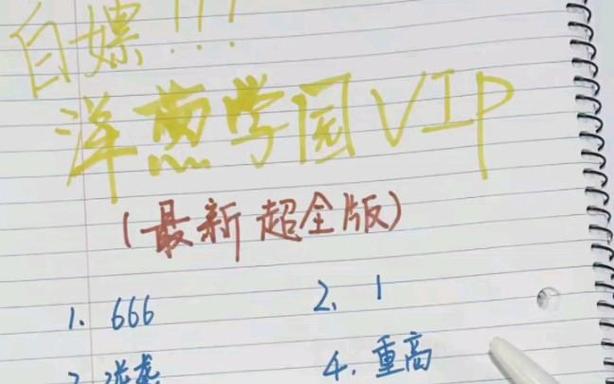 白嫖!!!
洋葱学园VIP
(最新超全版)
1. 666 2. 1
4. 重高